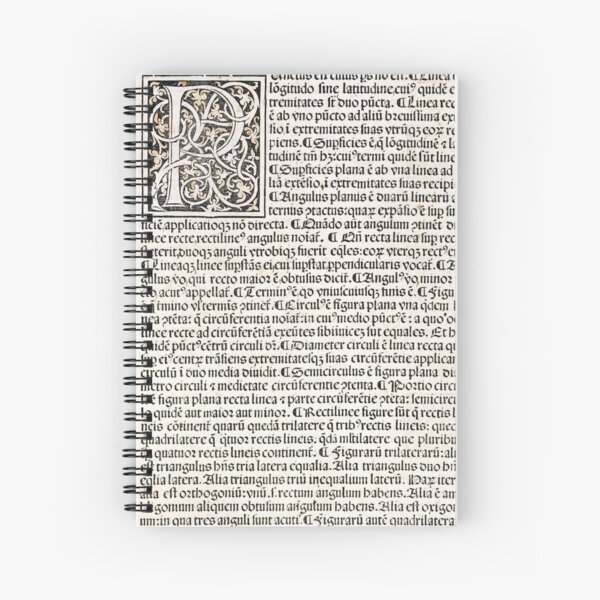 P
lõgitudo sine latitudine, cuiꝰ quidẽ e
tremitates sũt duo pũcta. ¶ Linea rec
ẽ ab vno pũcto ad aliũ breuissima ex
sio i extremitates suas vtrũqꝫ eoꝝ re
piens. ¶ Supficies ẽ, q̃ lõgitudinẽ ⁊ la
tudinẽ tm̃ hꝫ: cuiꝰ termi quidẽ sũt line
¶ Supficies plana ẽ ab vna linea ad
liã extẽsio, i extremitates suas recipi
¶ Angulus planus ẽ duarũ linearũ a
ternus ꝯtactus: quaꝝ expãsio ẽ sup su
ficiẽ, applicatioqꝫ nõ directa. ¶ Quãdo aut angulum ꝯtinẽt d
linee recte, rectilineꝰ angulus noiat. ¶ Qñ recta linea sup rec
steterit, duoqꝫ anguli vtrobiqꝫ fuerit eq̃les: eoꝝ vterqꝫ rectꝰ e
¶ Lineaqꝫ linee supstãs ei cui supstat, ppendicularis vocat. ¶ A
gulus vo, qui recto maior ẽ, obtusus dicit. ¶ Angulꝰ vo, minor
cto acutꝰ appellat. ¶ Terminꝰ ẽ, qd vniuscuiusqꝫ finis ẽ. ¶ Figu
ẽ q̃ tmino vl terminis ꝯtinet. ¶ Circulꝰ ẽ figura plana vna qdem
nea ꝯtẽta: q̃ circũferentia noiat: in cuiꝰ medio pũctꝰ ẽ: a quo oẽ
linee recte ad circũferẽtiã exeũtes sibiiuicẽ sut equales. Et h
quidẽ pũctꝰ cẽtrũ circuli dr̃. ¶ Diameter circuli ẽ linea recta qu
sup eiꝰ centꝝ trãsiens extremitatesqꝫ suas circũferẽtie applican
circulũ i duo media diuidit. ¶ Semicirculus ẽ figura plana di
metro circuli ⁊ medietate circũferentie ꝯtenta. ¶ Portio circu
ẽ figura plana recta linea ⁊ parte circũferẽtie ꝯtẽta: semicircu
lo quidẽ aut maior aut minor. ¶ Rectilinee figure sũt q̃ rectis l
neis cõtinent quarũ quedã trilatere q̃ tribꝰ rectis lineis: quedã
quadrilatere q̃ qtuor rectis lineis. qdã mltilatere que pluribus
quatuor rectis lineis continent. ¶ Figurarũ trilaterarũ: ali
est triangulus hñs tria latera equalia. Alia triangulus duo hñ
eqlia latera. Alia triangulus triũ inequalium laterũ. Haꝝ iter
alia est orthogoniũ: vnũ .s. rectum angulum habens. Alia ẽ am
bligonium aliquem obtusum angulum habens. Alia est oxigon
um: in qua tres anguli sunt acuti. ¶ Figurarũ autẽ quadrilatera